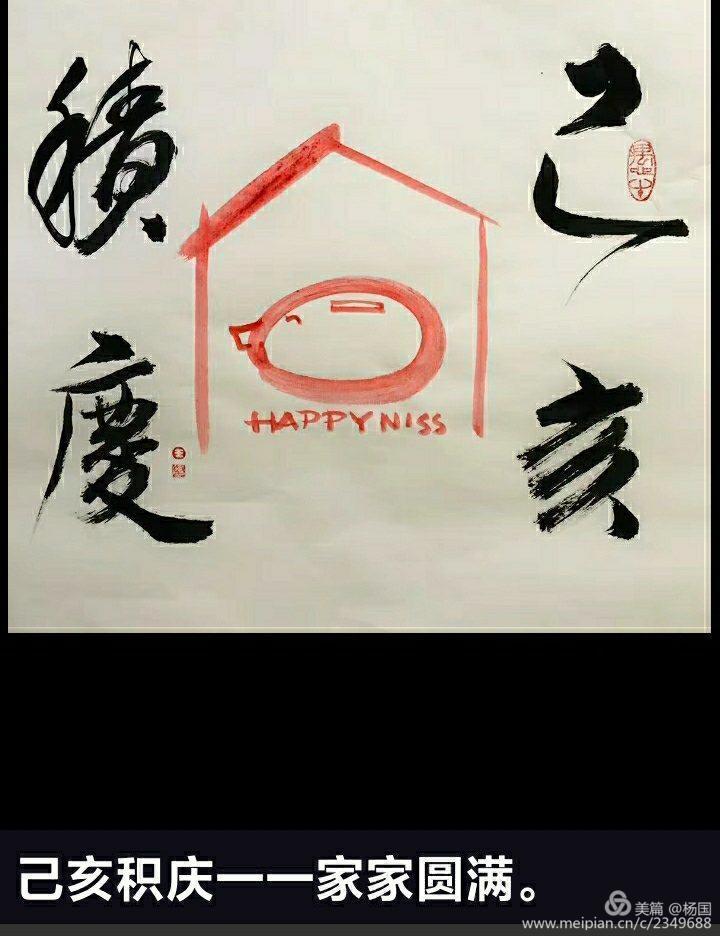 己亥
積慶
HAPPYNISS
己亥积庆一一家家圆满。
美篇 @杨国
www.meipian.cn/c/2349688